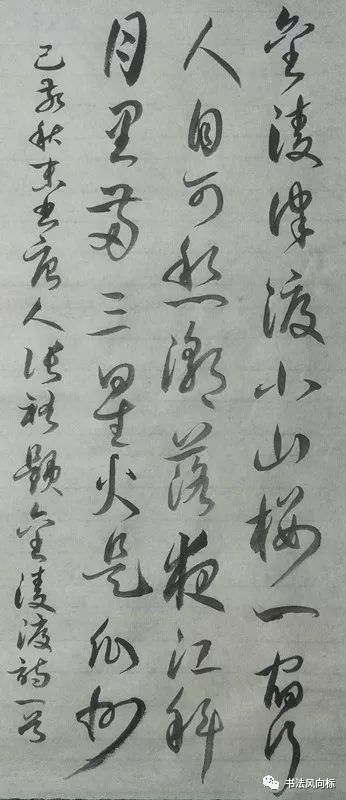 金陵津渡小山楼一宿行
人自可愁潮落夜江斜
月里两三星火是瓜州
己亥秋末书唐人张祜题金陵渡诗一首
书法风向标